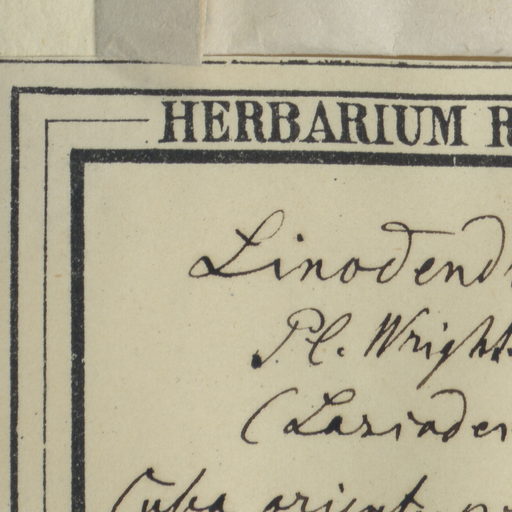 HERBARIUM R
Linodend
Pl. Wright
(Lasiaden
Cuba orient.